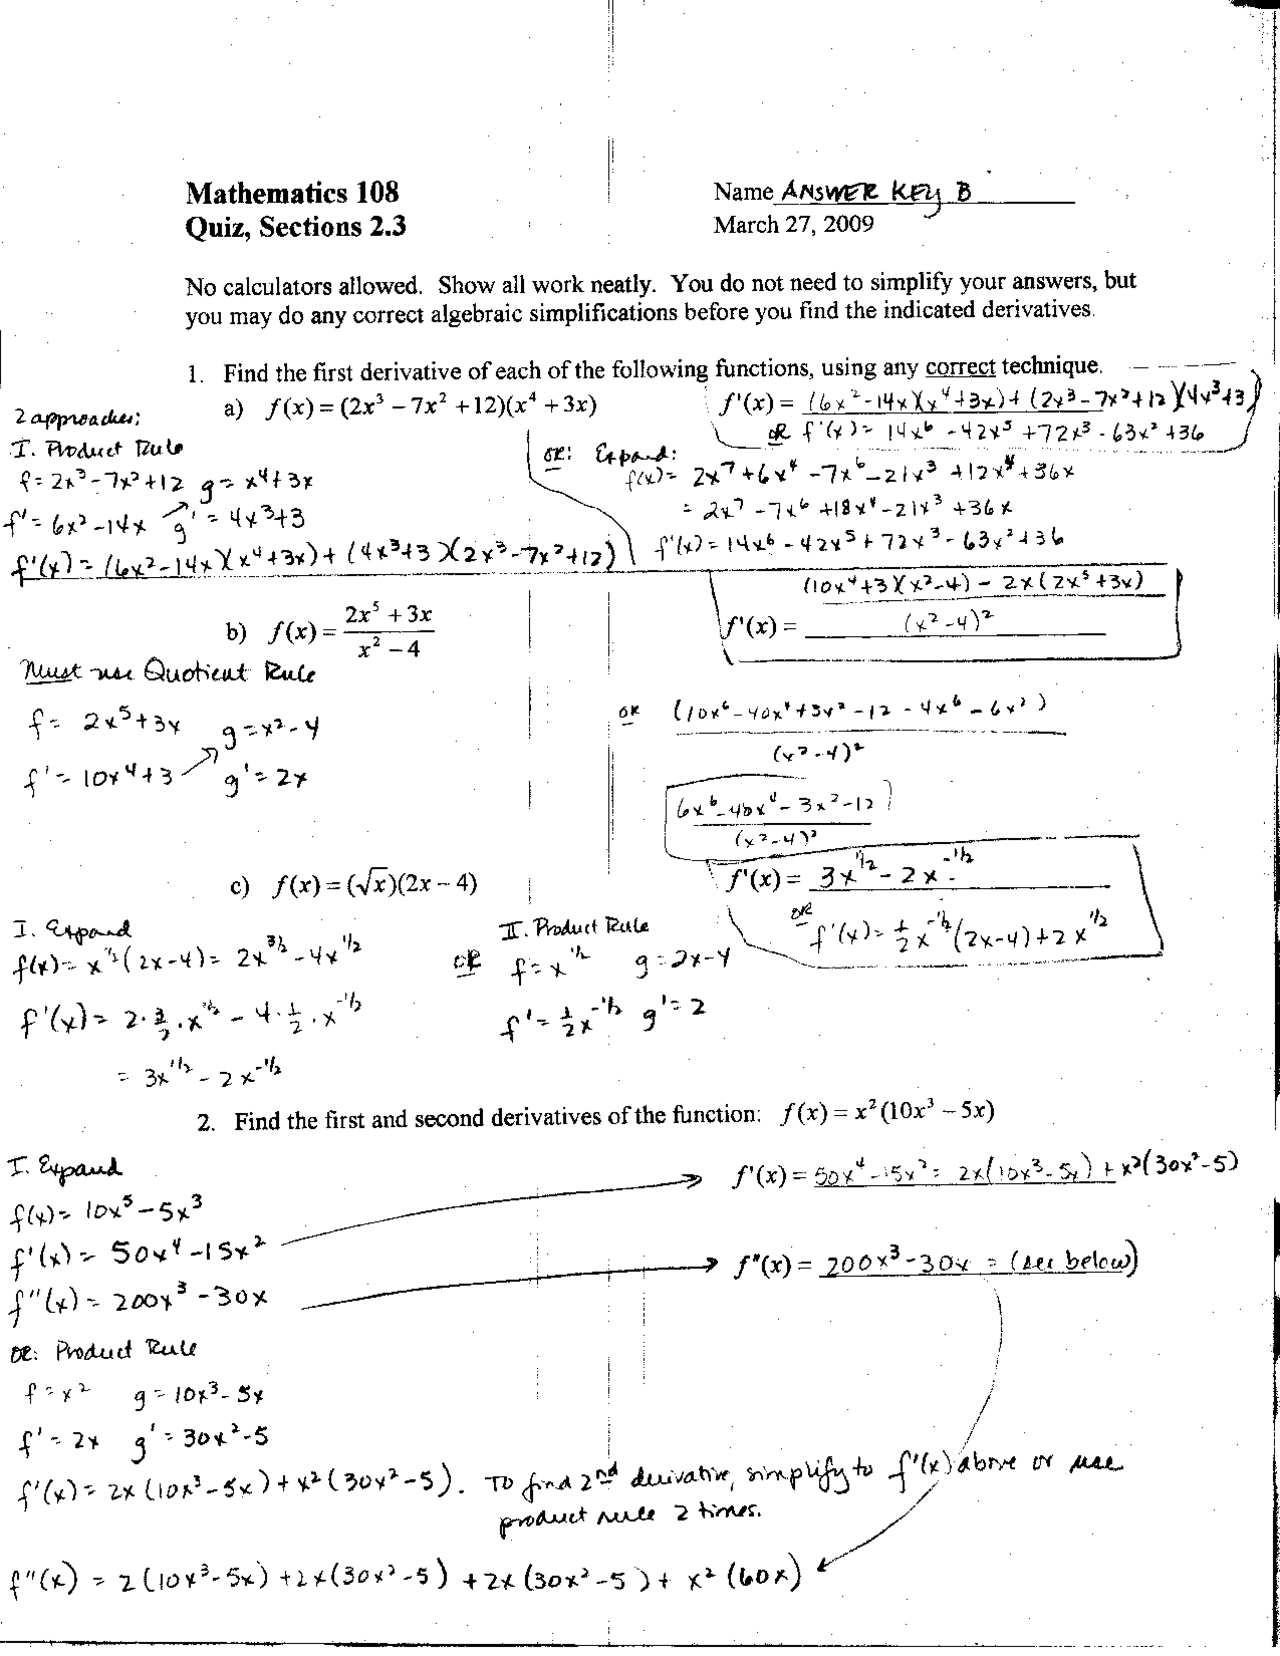 Mathematics 108
Quiz, Sections 2.3
Name ANSWER KEY B
March 27, 2009
No calculators allowed. Show all work neatly. You do not need to simplify your answers, but
you may do any correct algebraic simplifications before you find the indicated derivatives.
1. Find the first derivative of each of the following functions, using any correct technique.
a) f(x) = (2x³ − 7x² + 12)(x⁴ + 3x)
f'(x) = (6x²-14x)(x⁴+3x)+(2x³-7x²+12)(4x³+3)
OR f'(x) = 14x⁶ - 42x⁵ + 72x³ - 63x² + 36
2 approaches:
I. Product Rule
f = 2x³-7x²+12 g = x⁴+3x
f' = 6x²-14x g' = 4x³+3
f'(x) = (6x²-14x)(x⁴+3x)+(4x³+3)(2x³-7x²+12)
OR: Expand:
f(x) = 2x⁷+6x⁴-7x⁶-21x³+12x⁴+36x
= 2x⁷-7x⁶+18x⁴-21x³+36x
f'(x) = 14x⁶-42x⁵+72x³-63x²+36
b) f(x) = (2x⁵ + 3x)/(x² − 4)
f'(x) = ((10x⁴+3)(x²-4) - 2x(2x⁵+3x))/(x²-4)²
Must use Quotient Rule
f = 2x⁵+3x g = x²-4
f' = 10x⁴+3 g' = 2x
OR (10x⁶-40x⁴+3x²-12-4x⁶-6x²)/(x²-4)²
(6x⁶-40x⁴-3x²-12)/(x²-4)²
c) f(x) = (√x)(2x − 4)
f'(x) = 3x^1/2 - 2x^-1/2
OR f'(x) = 1/2 x^-1/2 (2x-4)+2x^1/2
I. Expand
f(x) = x^1/2(2x-4) = 2x^3/2 - 4x^1/2
f'(x) = 2·3/2·x^1/2 - 4·1/2·x^-1/2
= 3x^1/2 - 2x^-1/2
OR
II. Product Rule
f = x^1/2 g = 2x-4
f' = 1/2 x^-1/2 g' = 2
2. Find the first and second derivatives of the function: f(x) = x²(10x³ − 5x)
I. Expand
f(x) = 10x⁵-5x³
f'(x) = 50x⁴-15x²
f"(x) = 200x³-30x
f'(x) = 50x⁴-15x² = 2x(10x³-5x)+x²(30x²-5)
f"(x) = 200x³-30x = (see below)
OR: Product Rule
f = x² g = 10x³-5x
f' = 2x g' = 30x²-5
f'(x) = 2x(10x³-5x)+x²(30x²-5). To find 2nd derivative, simplify to f'(x) above or use
product rule 2 times.
f"(x) = 2(10x³-5x)+2x(30x²-5)+2x(30x²-5)+x²(60x)